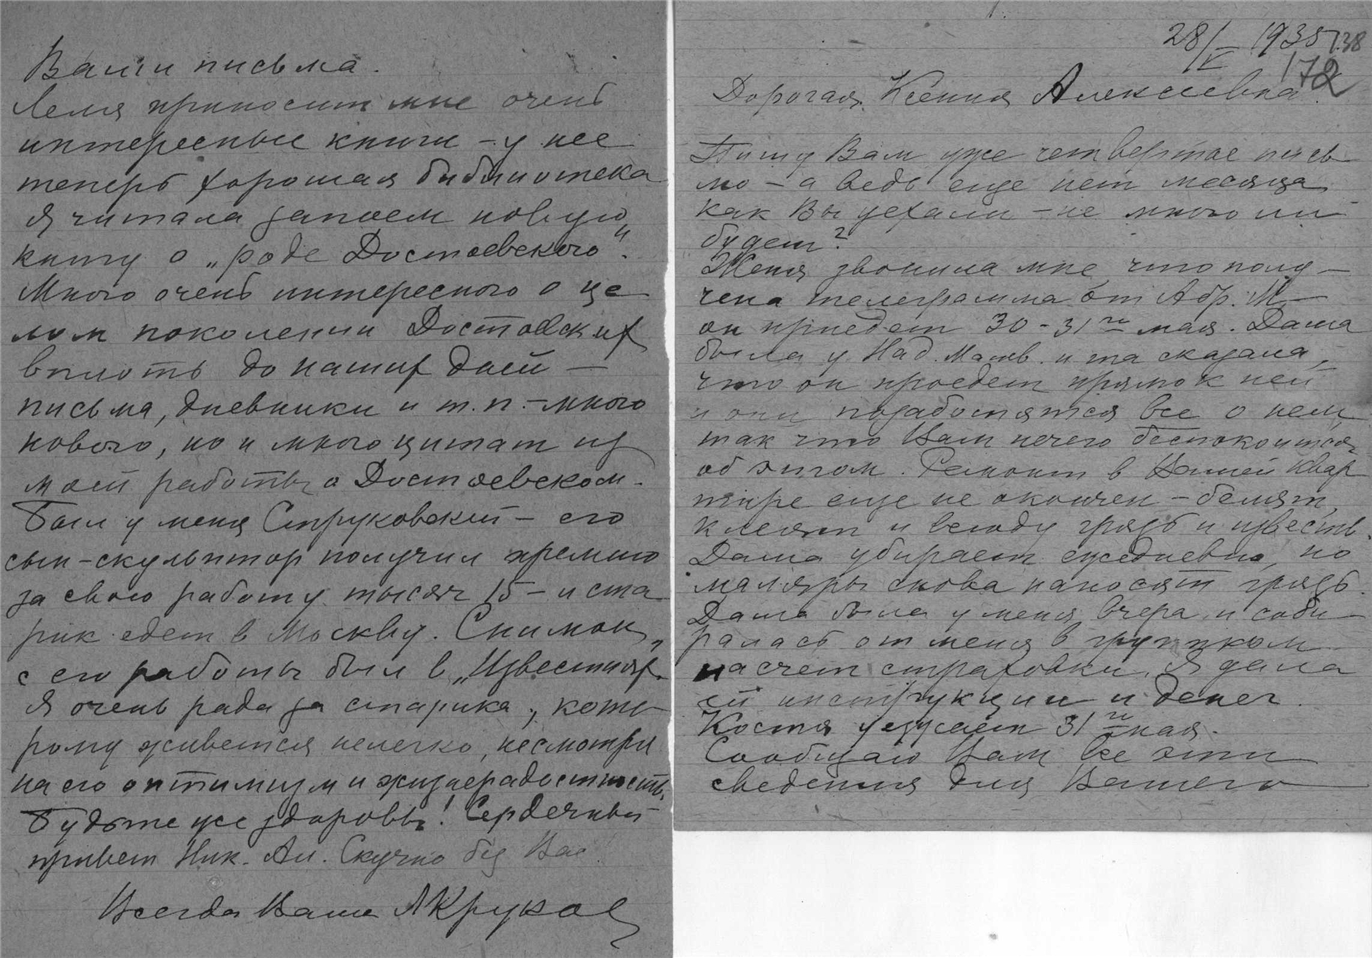 Ваши письма.
Леля приносит мне очень
интересные книги – у нее
теперь хорошая библиотека
Я читала запоем новую
книгу о „роде Достоевского".
Много очень интересного о це-
лом поколении Достоевских
вплоть до наших дней –
письма, дневники и т.п. – много
нового, но и много цитат из
моей работы о Достоевском.
Был у меня Струковский – его
сын-скульптор получил премию
за свою работу тысяч 15 – и ста
рик едет в Москву. Снимок
с его работы был в „Известиях
Я очень рада за старика, кото-
рому живется нелегко, несмотря
на его оптимизм и жизнерадостность.
Будьте же здоровы! Сердечный
привет Ник. Ал. Скучно без Вас.
Всегда Ваша АКрукова
28/V 1935 138
172
Дорогая Ксения Алексеевна.
Пишу Вам уже четвертое пись-
мо – а ведь еще нет месяца
как Вы уехали – не много ли
будет?
Женя звонила мне что полу-
чена телеграмма от Абр. М –
он приедет 30-31го мая. Даша
была у Над. Матв. и та сказала,
что он проедет прямо к ней
и они позаботятся все о нем,
так что Вам нечего беспокоиться
об этом. Ремонт в Вашей квар
тире еще не окончен – белят,
клеят и всюду грязь и известь.
Даша убирает ежедневно, но
маляры снова наносят грязь.
Даша была у меня вчера и соби-
ралась от меня в групком
насчет страховки. Я дала
ей инструкции и денег.
Костя уезжает 31го мая.
Сообщаю Вам все эти
сведения для Вашего